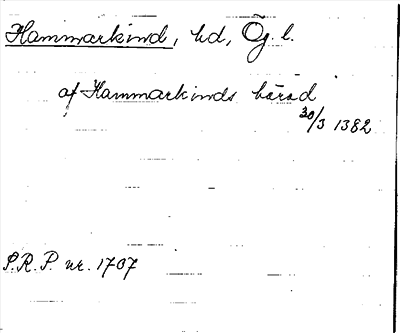 Hammarkind, hd, Ög. l.
af Hammarkinds härad
30/3 1382
S.R.P. nr. 1707